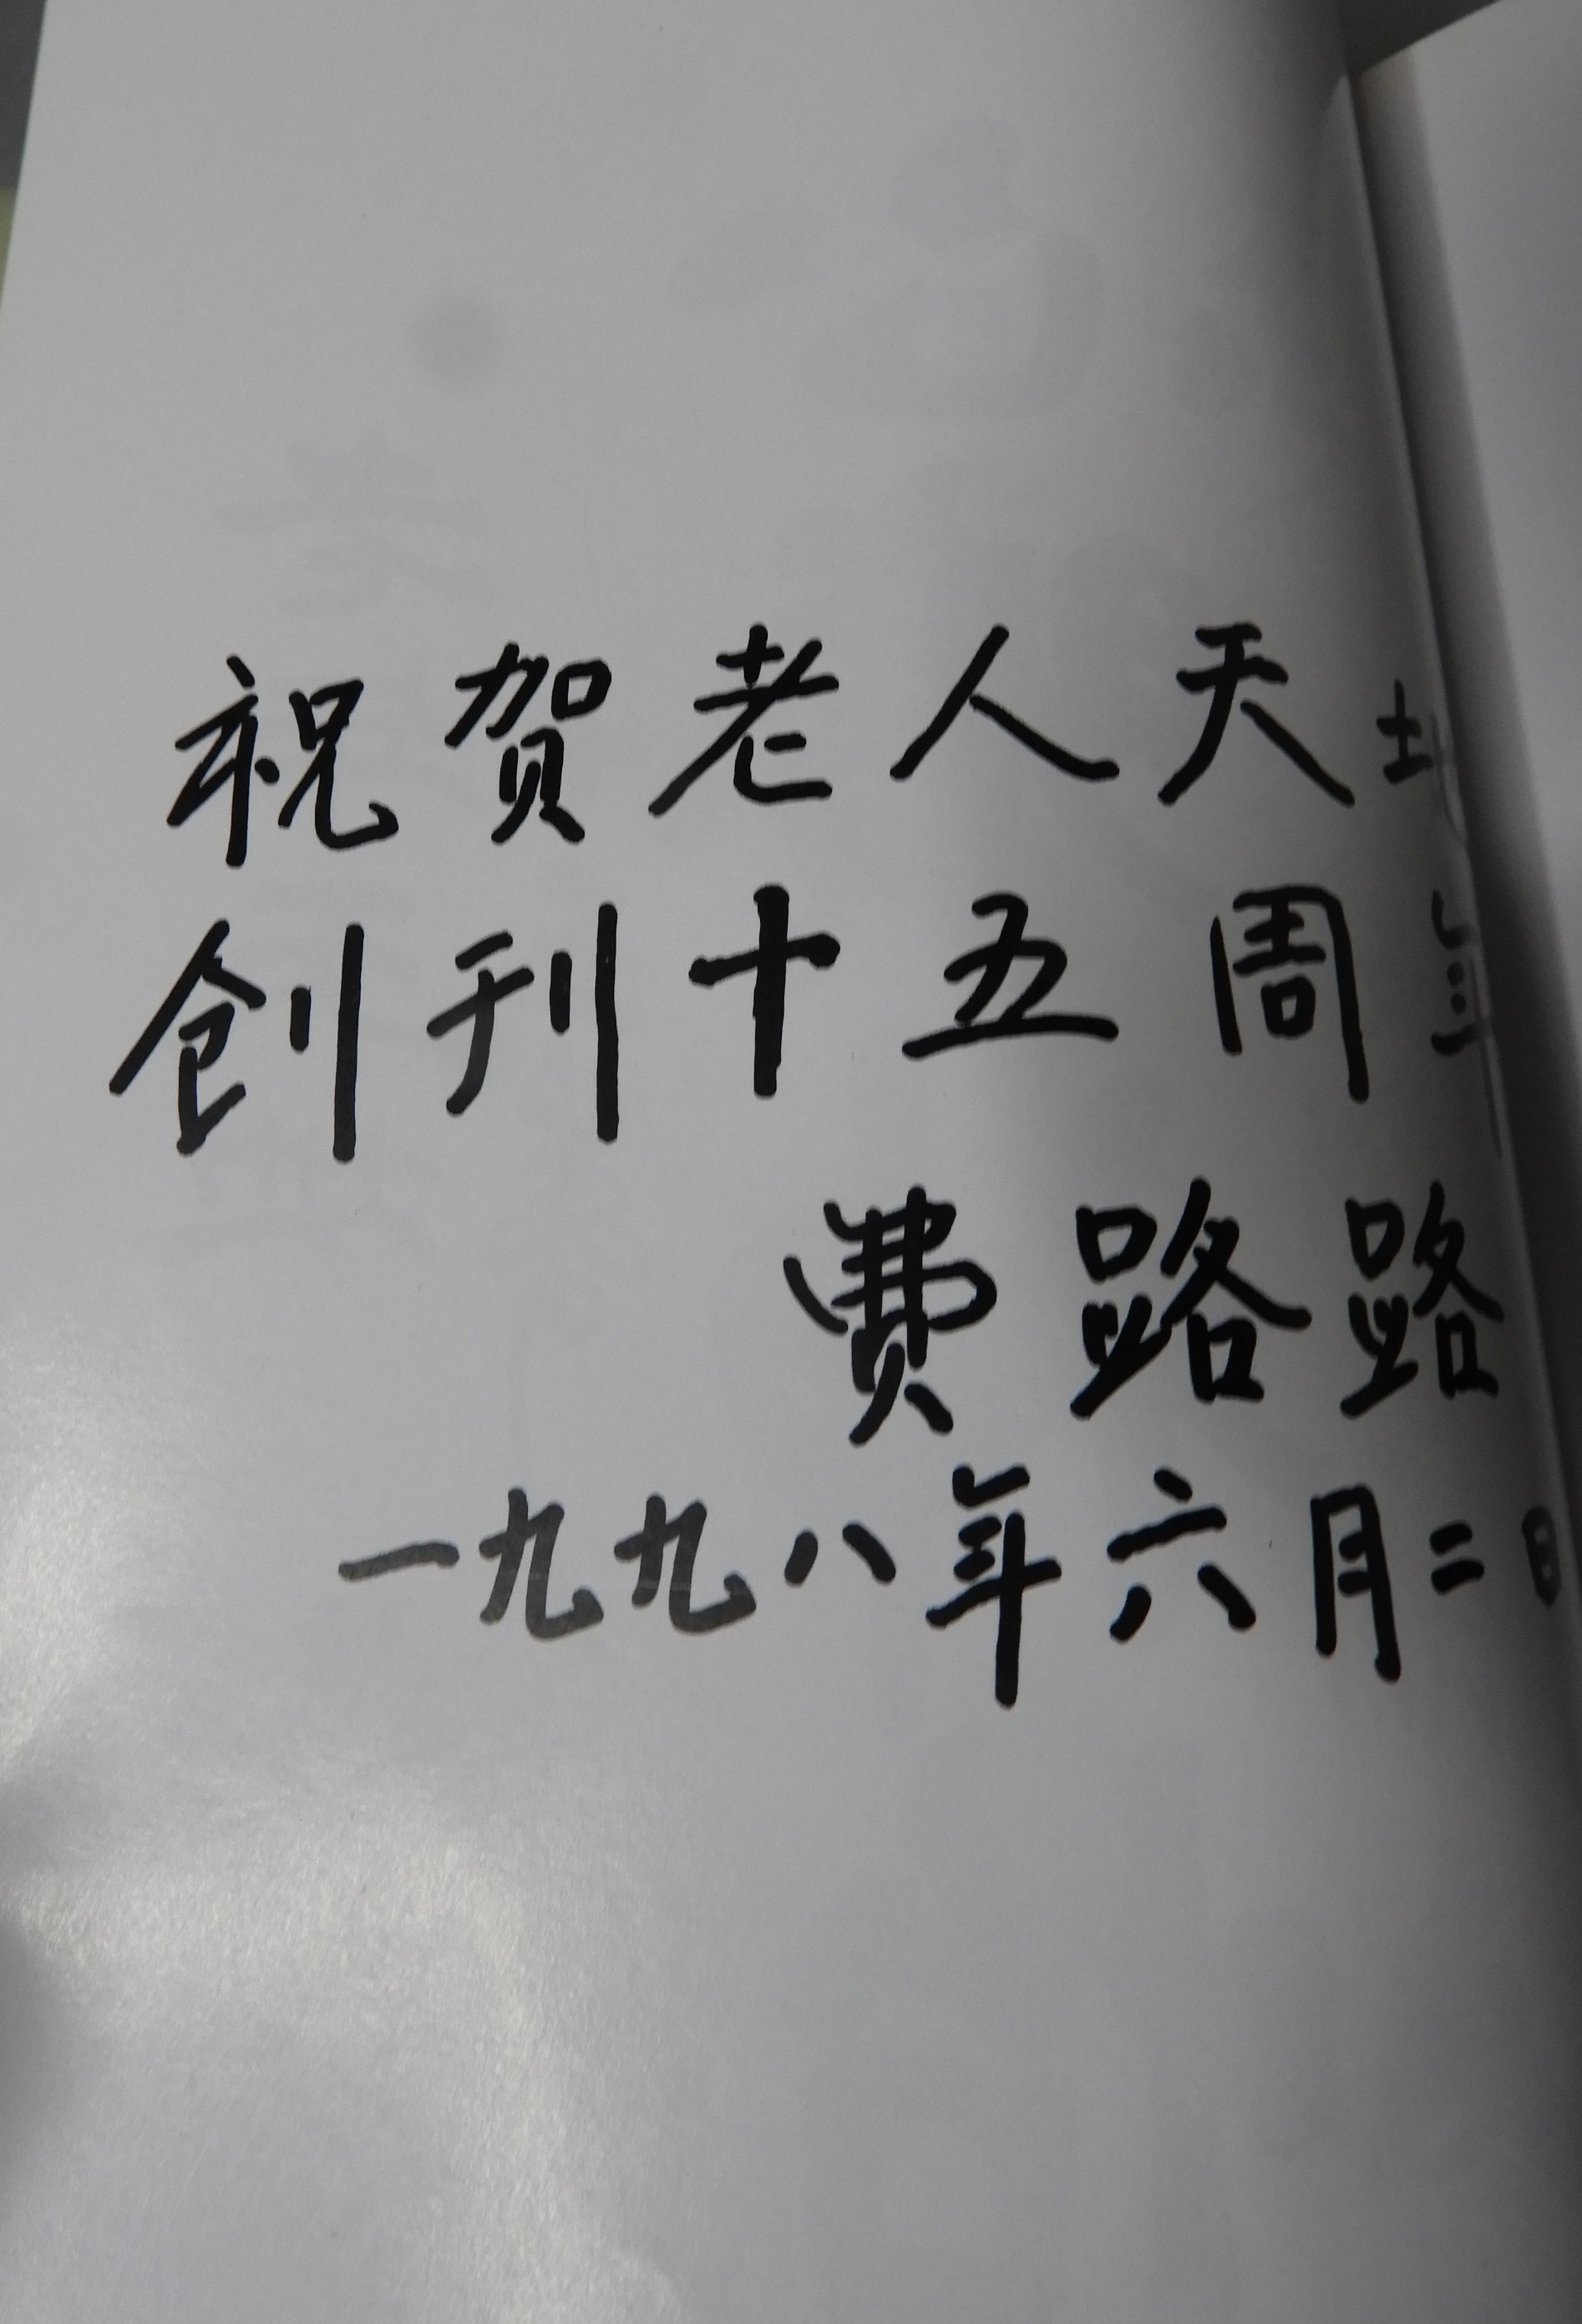 祝贺老人天地
创刊十五周年
费路路
一九九八年六月二日